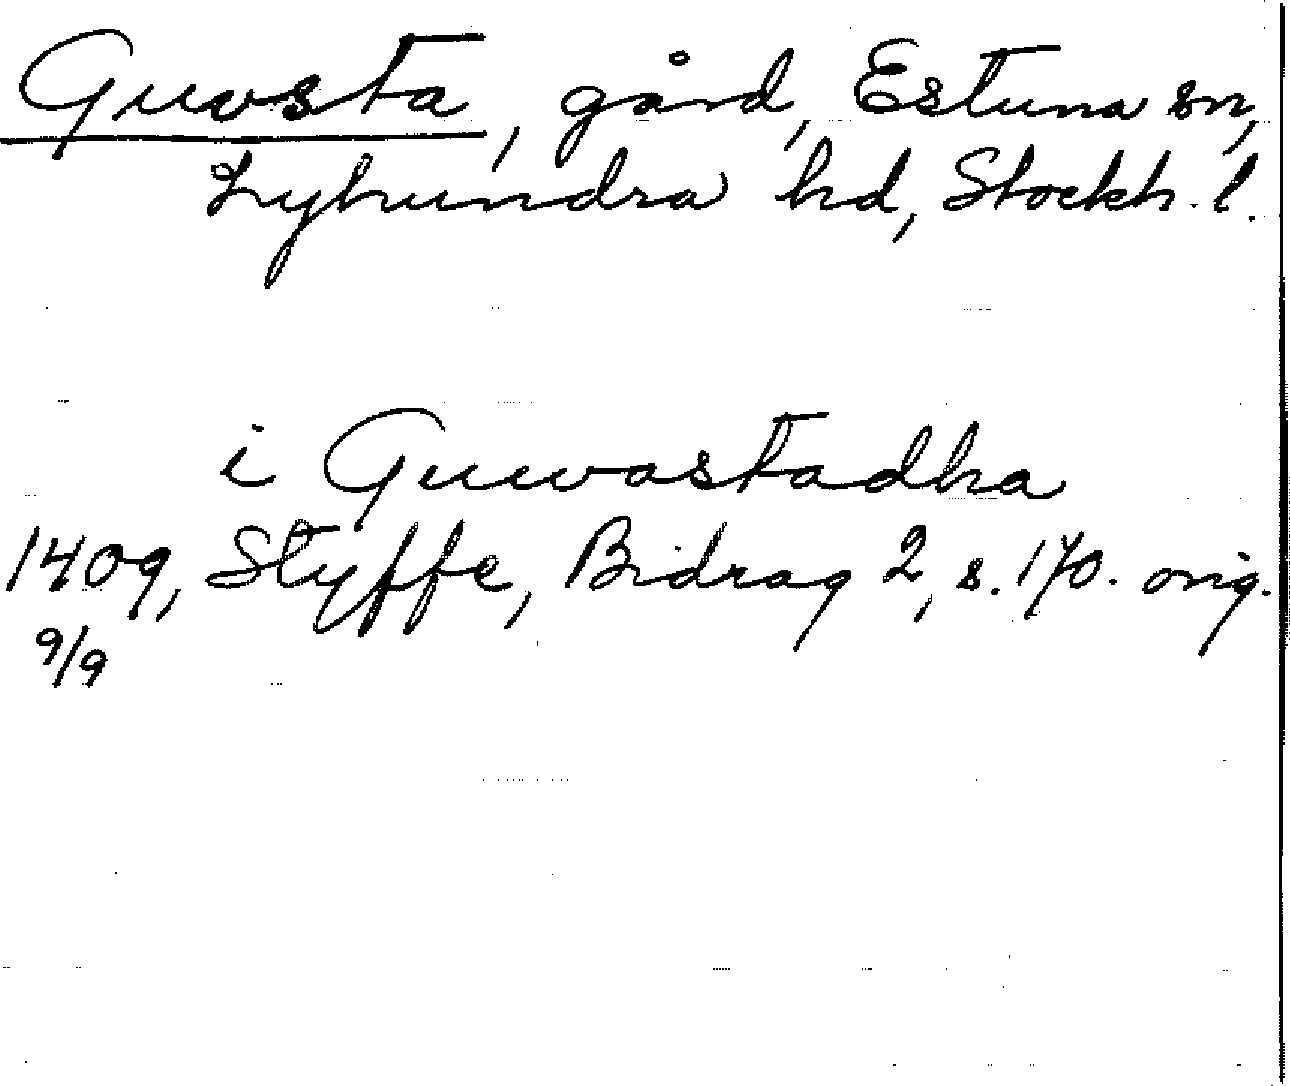 Guvsta, gård, Estuna sn,
Lyhundra hd, Stockh. l.
i Guvastadha
1409, Styffe, Bidrag 2, s. 170. orig.
9/9